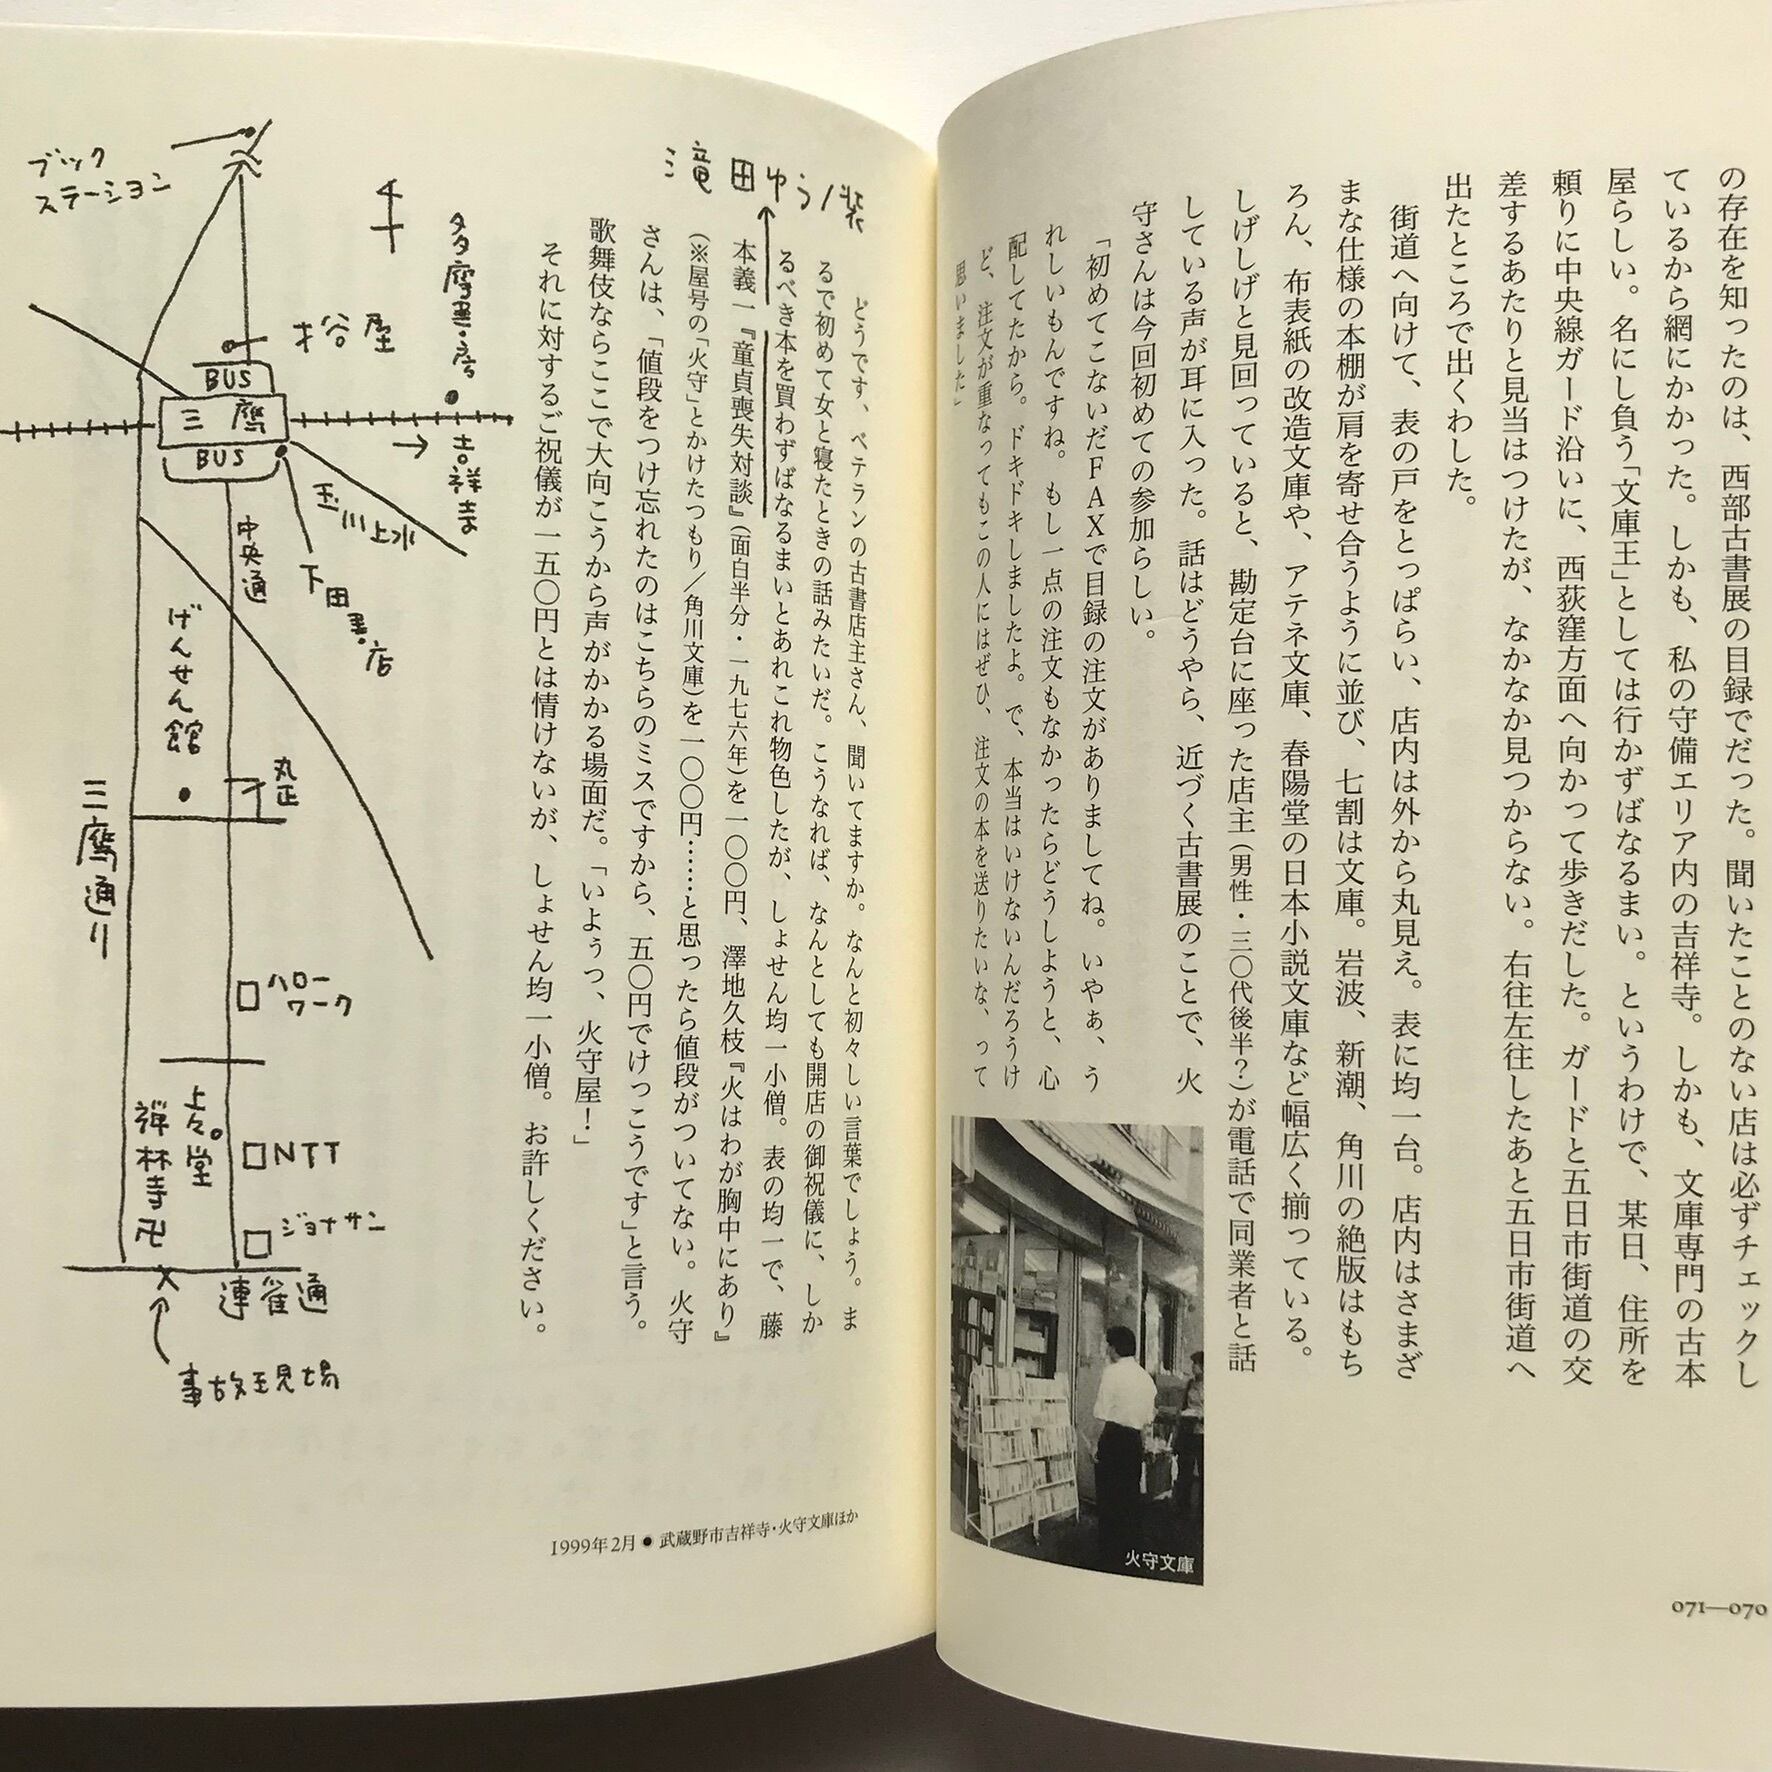 の存在を知ったのは、西部古書展の目録でだった。聞いたことのない店は必ずチェックし
ているから網にかかった。しかも、私の守備エリア内の吉祥寺。しかも、文庫専門の古本
屋らしい。名にし負う「文庫王」としては行かずばなるまい。というわけで、某日、住所を
頼りに中央線ガード沿いに、西荻窪方面へ向かって歩きだした。ガードと五日市街道の交
差するあたりと見当はつけたが、なかなか見つからない。右往左往したあと五日市街道へ
出たところで出くわした。
街道へ向けて、表の戸をとっぱらい、店内は外から丸見え。表に均一台。店内はさまざ
まな仕様の本棚が肩を寄せ合うように並び、七割は文庫。岩波、新潮、角川の絶版はもち
ろん、布表紙の改造文庫や、アテネ文庫、春陽堂の日本小説文庫など幅広く揃っている。
しげしげと見回っていると、勘定台に座った店主(男性・三〇代後半?)が電話で同業者と話
している声が耳に入った。話はどうやら、近づく古書展のことで、火
守さんは今回初めての参加らしい。
「初めてこないだFAXで目録の注文がありましてね。いやぁ、う
れしいもんですね。もし一点の注文もなかったらどうしようと、心
配してたから。ドキドキしましたよ。で、本当はいけないんだろうけ
ど、注文が重なってもこの人にはぜひ、注文の本を送りたいな、って
思いました」
火守文庫
071—070
どうです、ベテランの古書店主さん、聞いてますか。なんと初々しい言葉でしょう。ま
るで初めて女と寝たときの話みたいだ。こうなれば、なんとしても開店の御祝儀に、しか
るべき本を買わずばなるまいとあれこれ物色したが、しょせん均一小僧。表の均一で、藤
本義一『童貞喪失対談』(面白半分・一九七六年)を一〇〇円、澤地久枝『火はわが胸中にあり』
(※屋号の「火守」とかけたつもり/角川文庫)を一〇〇円……と思ったら値段がついてない。火守
さんは、「値段をつけ忘れたのはこちらのミスですから、五〇円でけっこうです」と言う。
歌舞伎ならここで大向こうから声がかかる場面だ。「いよぅっ、火守屋!」
それに対するご祝儀が一五〇円とは情けないが、しょせん均一小僧。お許しください。
滝田ゆう/装
1999年2月●武蔵野市吉祥寺・火守文庫ほか
ブック
ステーション
多摩書房
BUS
三鷹
BUS
吉祥寺
玉川上水
下田書店
中央通
げんせん館
丸正
三鷹通り
ハロー
ワーク
上々堂
禅林寺卍
NTT
ジョナサン
連雀通
事故現場